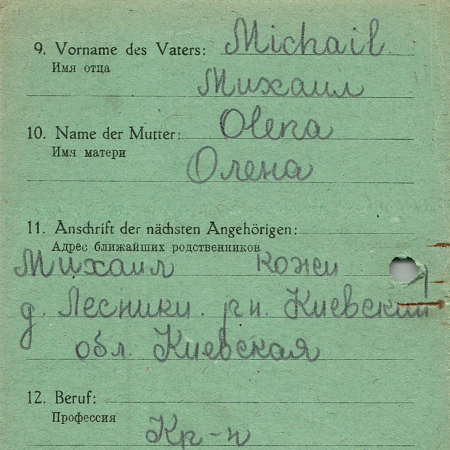 9. Vorname des Vaters: Michail
Имя отца
Михаил
10. Name der Mutter: Olena
Имя матери
Олена
11. Anschrift der nächsten Angehörigen:
Адрес ближайших родственников
Михаил Кожи
д. Лесники. р-н. Киевский
обл. Киевская
12. Beruf:
Профессия
Кр-н